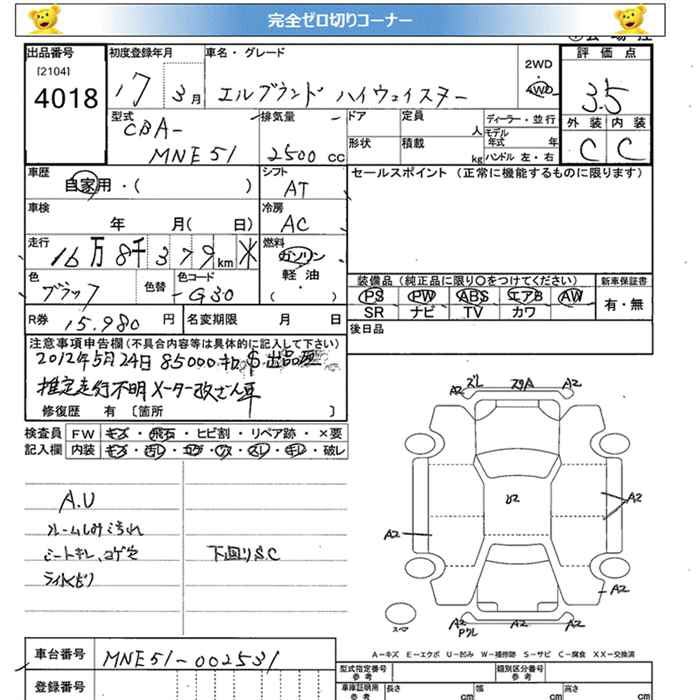 完全ゼロ切りコーナー
出品番号 初度登録年月 車名・グレード 2WD 評価点
[2104]
4018 17 3月 エルグランド ハイウェイスター ・ 4WD 3.5
型式 排気量 ドア 定員 人 ディーラー・並行 外装 内装
CBA- 形状 積載 kg モデル年式 年 C C
MNE51 2500 cc ハンドル 左・右
車歴 シフト セールスポイント (正常に機能するものに限ります)
自家用・( ) AT
車検 冷房
年 月( 日) AC
走行 燃料
16万8千379km ガソリン
軽油
( )
色 色替 色コード 装備品 (純正品に限り○をつけてください) 新車保証書
ブラック G30 PS PW ABS エアB AW 有・無
SR ナビ TV カワ
R券 15,980 円 名変期限 月 日 後日品
注意事項申告欄(不具合内容等は具体的に記入して下さい)
2012年5月24日 85000キロ
推定走行不明 メーター改ざん車
修復歴 有 [箇所 ]
検査員 FW キズ・飛石・ヒビ割・リペア跡・×要
記入欄 内装 キズ・汚レ・コゲ・穴・スレ・キレ・破レ
A2 ズレ A2
A2
A2
A2
A2
A2 A2
A.U
シートキレ、コゲ穴
下回りSC
A-キズ E-エクボ U-凹み W-補修跡 S-サビ C-腐食 XX-交換済
車台番号 MNE51-002531
登録番号
型式指定番号 参考 類別区分番号 参考
車庫証明用 参考 長さ cm 幅 cm 高さ cm